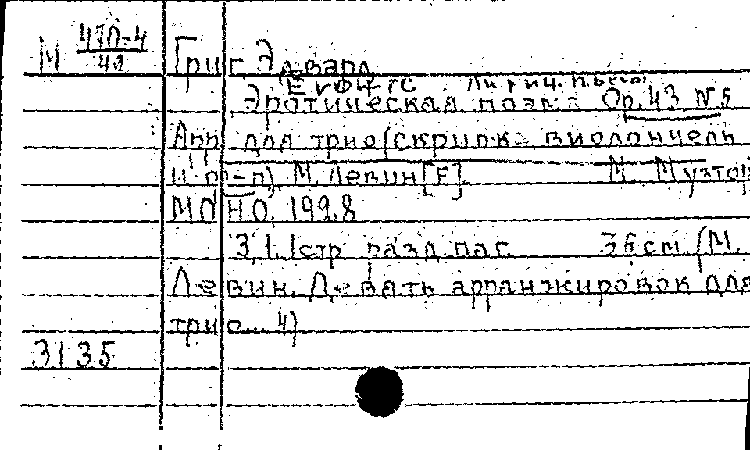 М 470-4/42 Григ Эдвард
Erotic Лирич. пьесы
Эротическая поэма Op. 43 N 5
Арр. для трио (скрипка виолончель
и ф-п) М. Левин [F]. М. Музтор
МОНО, 1928
3,1,1 стр разд. паг. 36 см. (М.
Левин. Девять аранжировок для
трио... 4)
3135